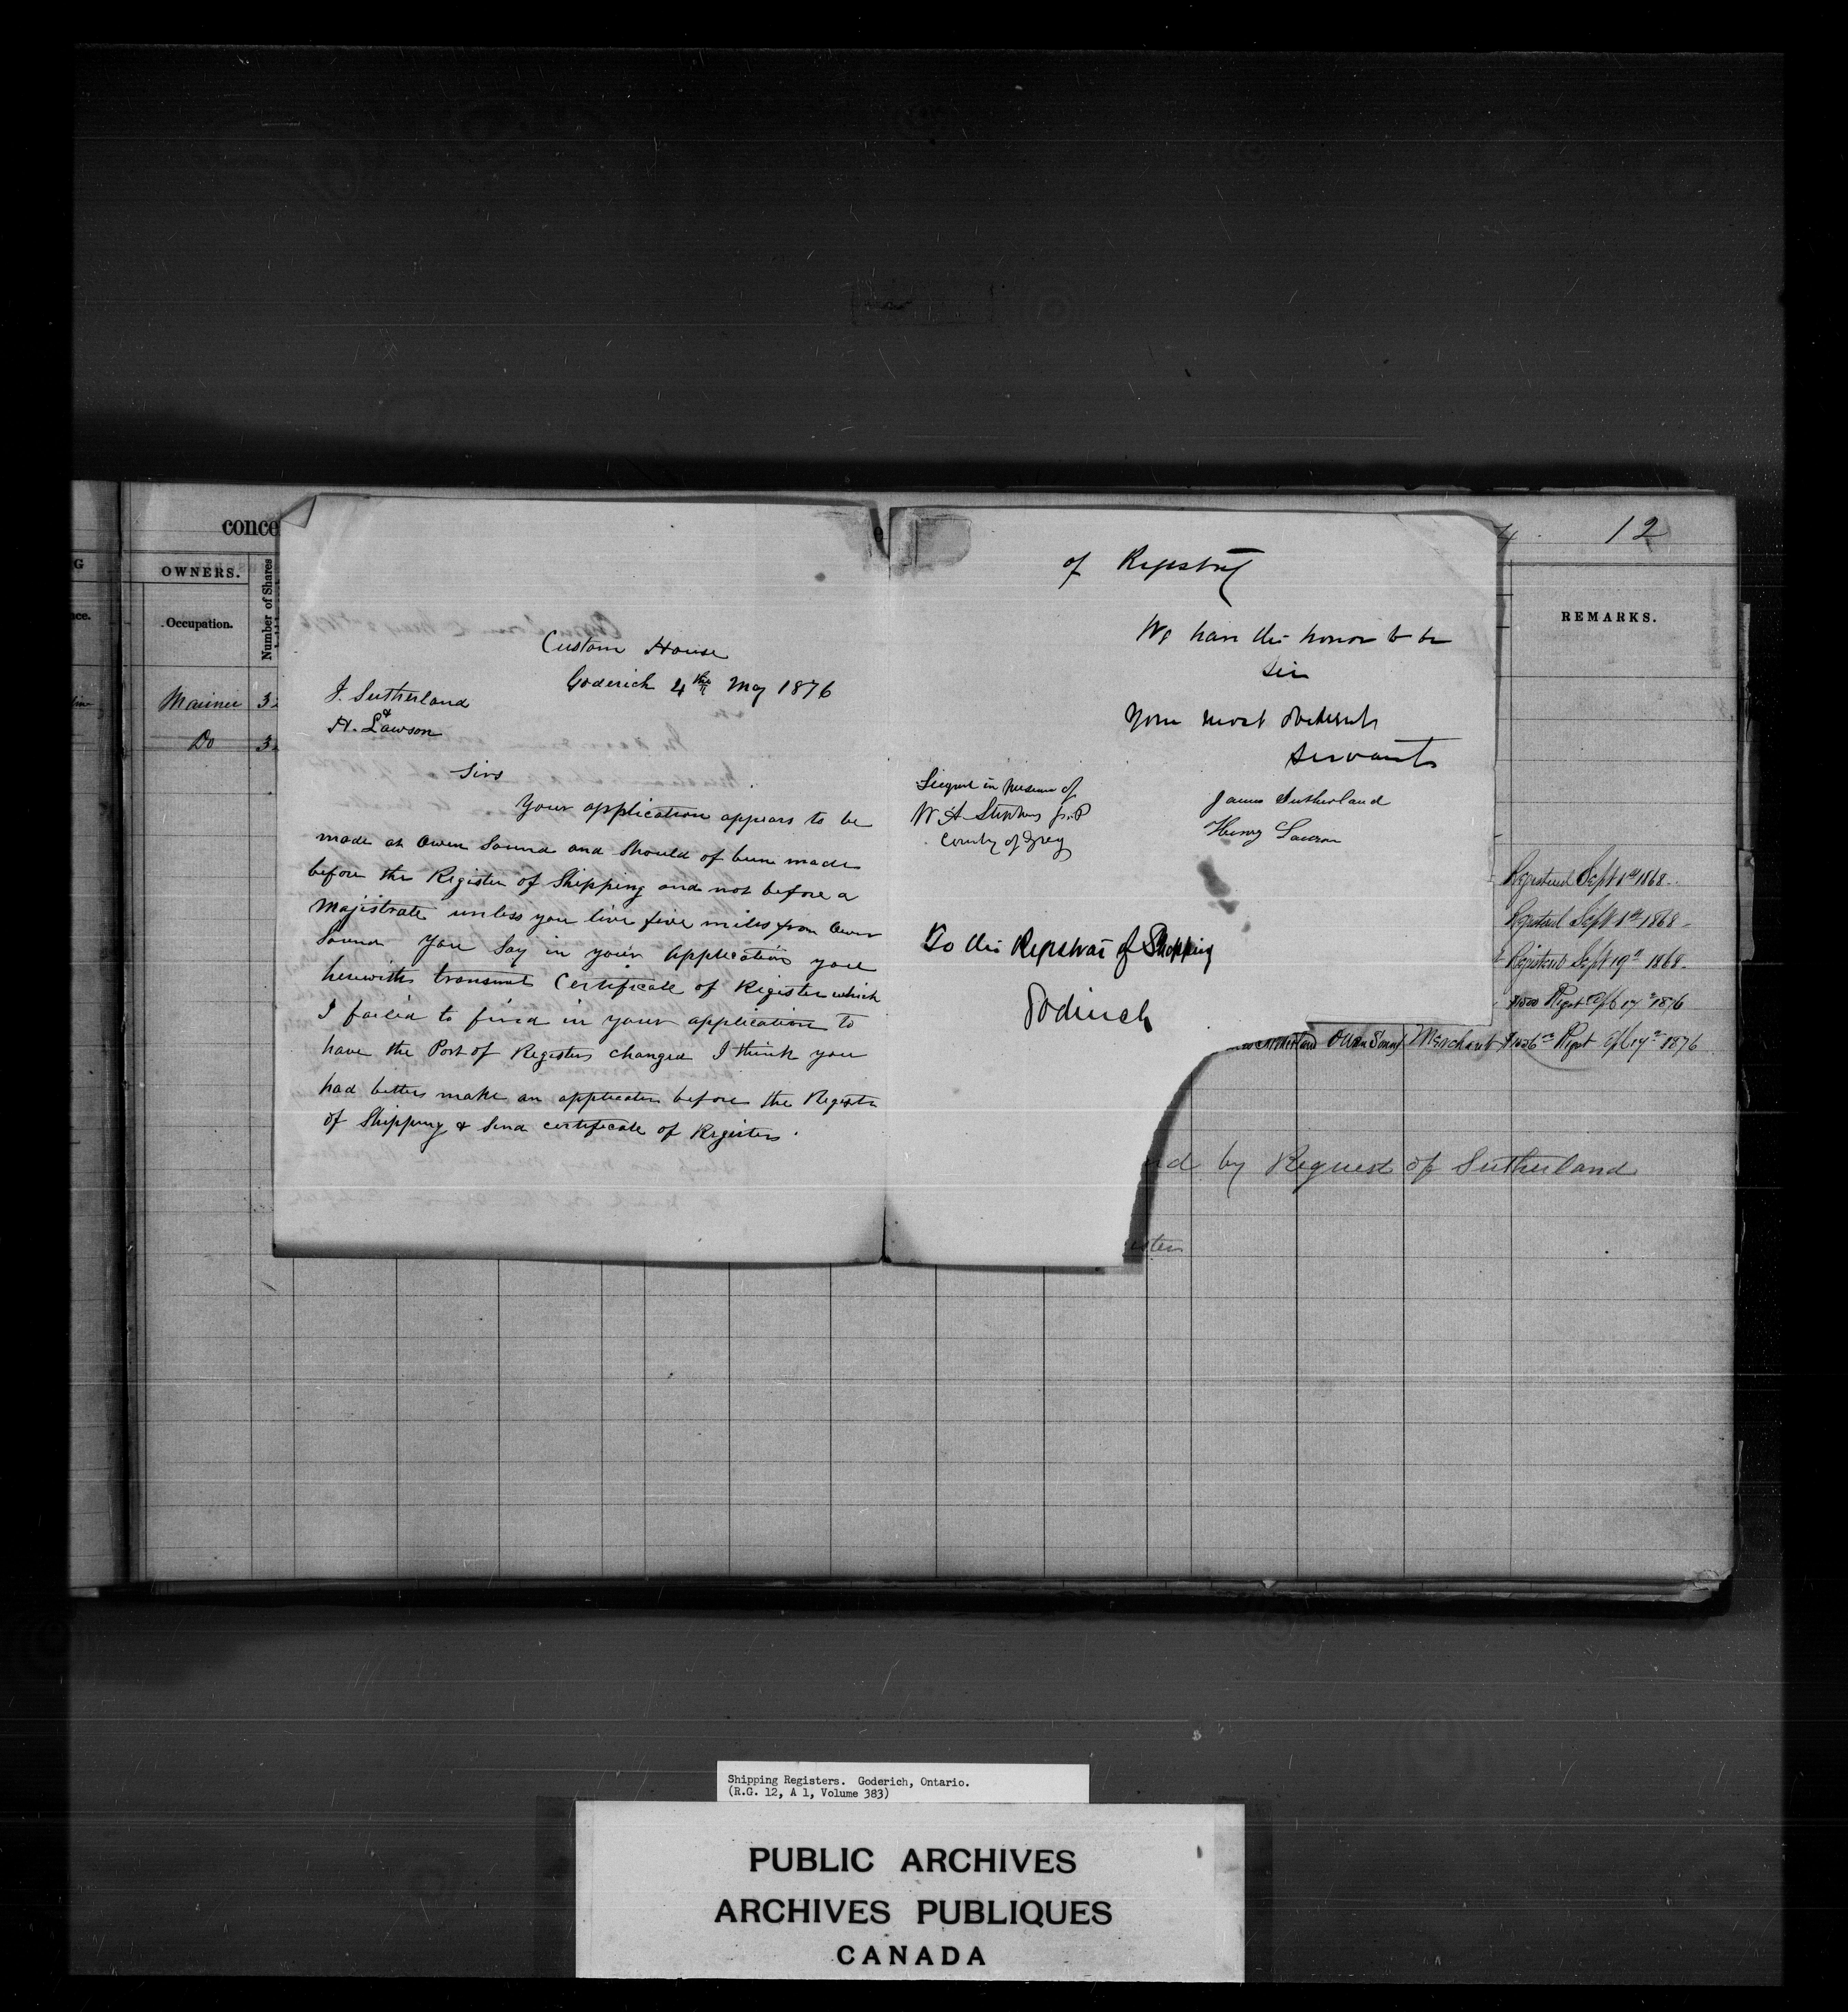 conce
12
OWNERS.
Occupation.
Number of Shares
REMARKS.
Mariner 32
Do 32
Custom House
Goderich 4th May 1876
J. Sutherland
&
H. Lawson
Sirs
Your application appears to be
made at Owen Sound and should of been made
before the Register of Shipping and not before a
Majistrate unless you live five miles from Owen
Sound You say in your application you
herewith transmit Certificate of Register which
I failed to find in your application to
have the Port of Register changed I think you
had better make an application before the Register
of Shipping & send certificate of Register.
of Registry
We have the honor to be
Sir
Your most obedient
servants
Signed in presence of
W A Stephens J.P
County of Grey
James Sutherland
Henry Lawson
To the Registrar of Shipping
Goderich
Registered Sept 1st 1868.
Registered Sept 1st 1868
Registered Sept 19th 1868.
$1500 Regist Apl 17th 1876
Owen Sound Merchant Regist Apl 17th 1876
by Request of Sutherland
Shipping Registers. Goderich, Ontario.
(R.G. 12, A 1, Volume 383)
PUBLIC ARCHIVES
ARCHIVES PUBLIQUES
CANADA